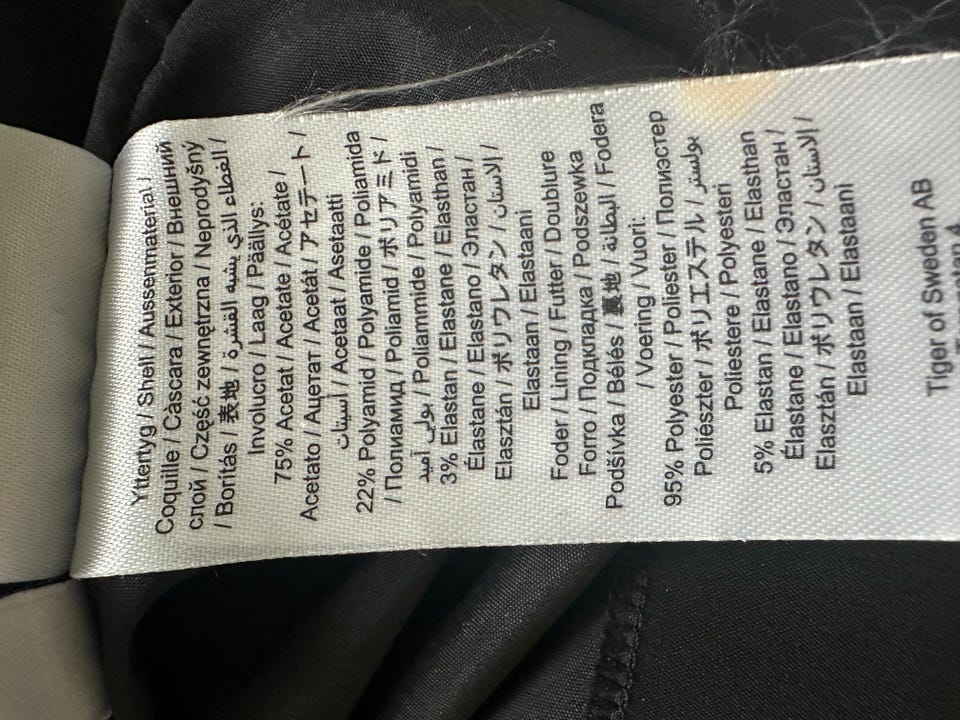 Yttertyg / Shell / Aussenmaterial /
Coquille / Càscara / Exterior / Внешний
слой / Część zewnętrzna / Neprodyšný
/ Borítás / 表地 / الغطاء الذي يشبه القشرة /
Involucro / Laag / Päällys:
75% Acetat / Acetate / Acétate /
Acetato / Ацетат / Acetát / アセテート /
أسيتات / Acetaat / Asetaatti
22% Polyamid / Polyamide / Poliamida
/ Полиамид / Poliamid / ポリアミド /
بولي أميد / Poliammide / Polyamidi
3% Elastan / Elastane / Elasthan /
Élastane / Elastano / Эластан /
Elasztán / ポリウレタン / الاستان /
Elastaan / Elastaani
Foder / Lining / Futter / Doublure
Forro / Подкладка / Podszewka
Podšívka / Bélés / 裏地 / البطانة / Fodera
/ Voering / Vuori:
95% Polyester / Poliester / Полиэстер
Poliészter / ポリエステル / بولستر /
Poliestere / Polyesteri
5% Elastan / Elastane / Elasthan
Élastane / Elastano / Эластан /
Elasztán / ポリウレタン / الاستان /
Elastaan / Elastaani
Tiger of Sweden AB